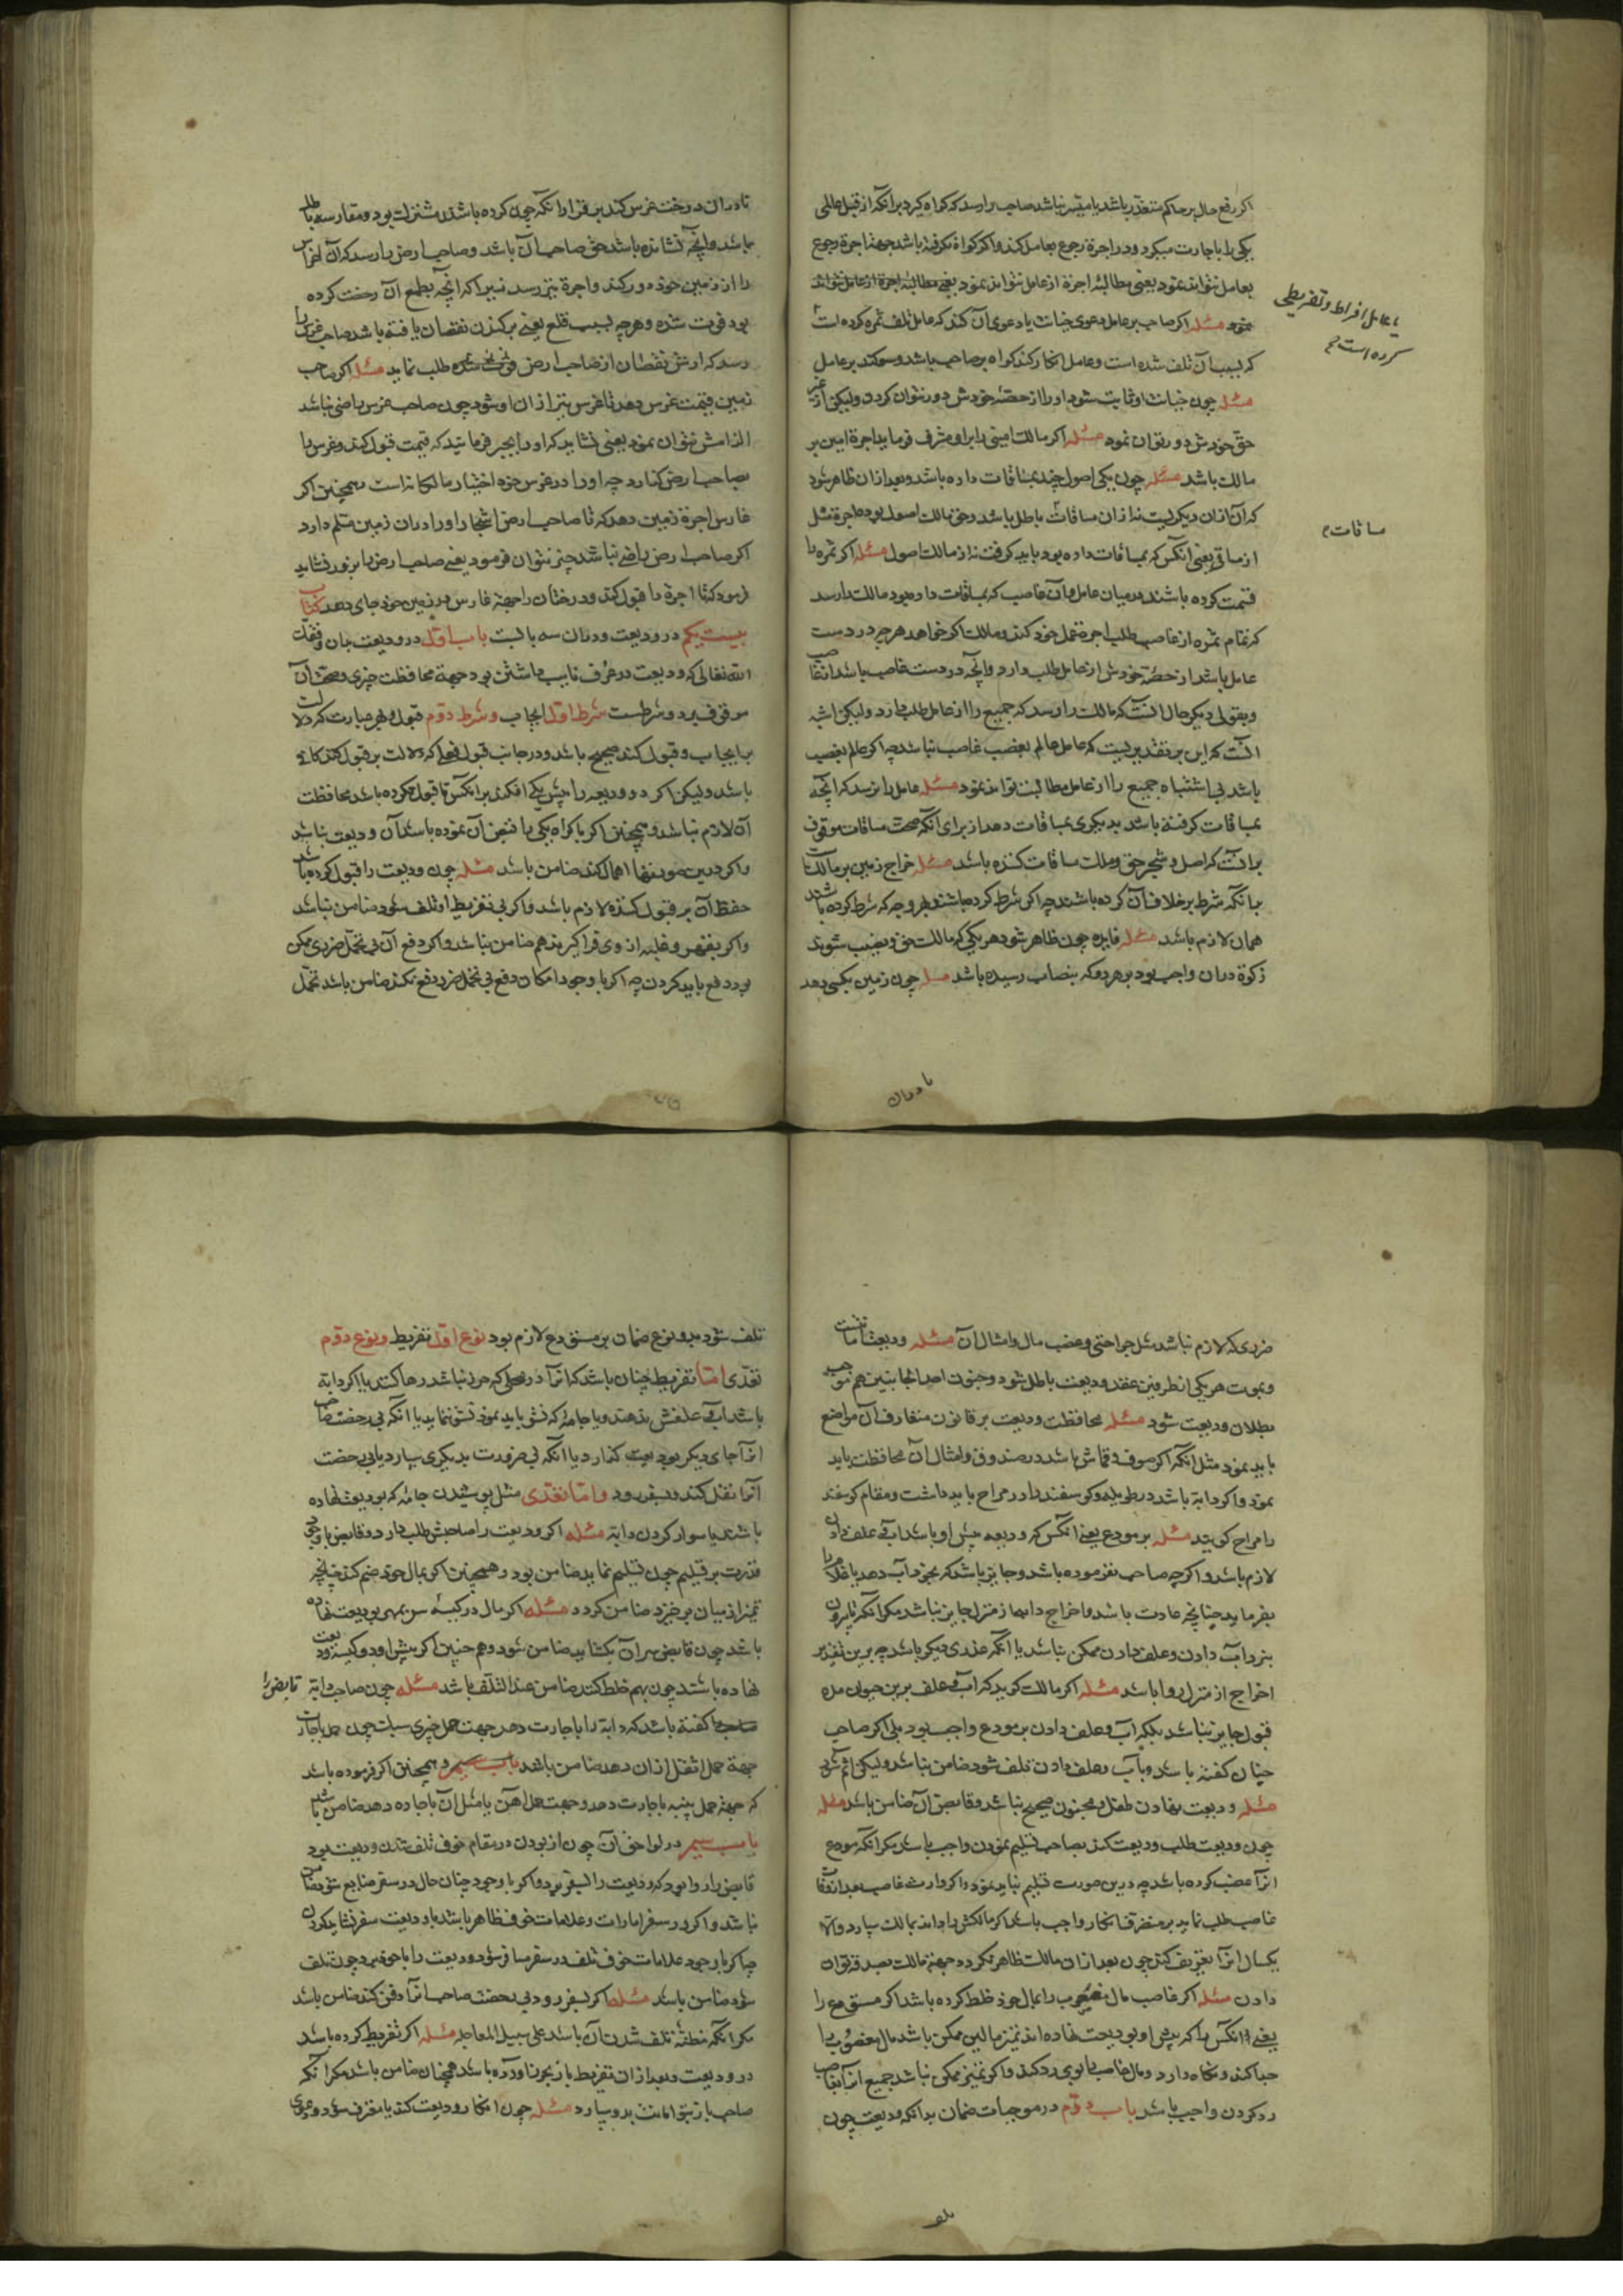 اکر رفع حال بر حاکم متعذر باشد یا میسر نباشد صاحب را رسد که کواه کیرد برآنکه از قبل عاملی
یکی را باجارت میکیرد و در اجرة رجوع بعامل کند و اکر کواه نکرفته باشد بجهة اجرة رجوع
بعامل نتواند نمود یعنی مطالبهٔ اجرة از عامل نتواند نمود یعنی مطالبهٔ اجرة از عامل نتواند
نمود مسئله اکر صاحب بر عامل دعوی خیانت یا دعوی آن کند که عامل تلف ثمره کرده است
یا عامل افراط و تفریطی
کرده است
که بسبب آن تلف شده است و عامل انکار کند کواه بر صاحب باشد و سوکند بر عامل
مسئله چون خیانت او ثابت شود او را از حصهٔ خودش دور نتوان کردن ولیکن از غیر
حق خودش دور توان نمود مسئله اکر مالک امینی را برو مشرف فرماید اجرة امین بر
مالک باشد مسئله چون یکی اصول چند بمساقات داده باشد و بعد از ان ظاهر شود
که آن از ان دیکریست نه از ان مساقات باطل باشد و حق مالک اصول بود و اجرة مثل
مساقات
از ساقی یعنی آنکس که بمساقات داده بود باید کرفت نه از مالک اصول مسئله اکر ثمره را
قسمت کرده باشند در میان عامل و آن غاصب که بمساقات داده بود مالک را رسد
که تمام ثمره از غاصب طلب اجرة عمل خود کند و مالک اکر خواهد هر چه در دست
عامل باشد از حصهٔ خودش از عامل طلب دارد و آنچه در دست غاصب باشد از غاصب
و بقولی دیکر حال آنست که مالک را رسد که جمیع را از عامل طلب دارد ولیکن اشبه
آنست که این بر تقدیریست که عامل عالم بغصب غاصب نباشد چه اکر عالم بغصب
باشد بی اشتباه جمیع را از عامل مطالبت تواند نمود مسئله عامل را نرسد که آنچه
بمساقات کرفته باشد بدیکری بمساقات دهد از برای آنکه صحت مساقات موقوف
بر آنست که اصل و شجر حق و ملک مساقات کننده باشد مسئله خراج زمین بر مالک
مانکه شرط بر خلاف آن کرده باشند چه اکر شرط کرده باشند بهر وجه که شرط کرده باشند
همان لازم باشد مسئله فایده چون ظاهر شود هر یکی که مالک حق و نصیب شوند
زکوة در ان واجب بود بر هر دو که بنصاب رسیده باشد مسئله چون زمین بکسی دهد
تا در ان
تا در ان درخت غرس کند بر قرار آنکه چون کرده باشند مشترک بود و مغارسه باطل
باشد و آنچه نشانده باشد حق صاحب آن باشد و صاحب ارض را رسد که آن اغراس
را از زمین خود دور کند و اجرة نیز رسد نیز اکه آنچه بطمع آن رخت کرده
بود فوت شده و هر چه بسبب قلع یعنی برکندن نقصان یافته باشد صاحب غرس را
رسد که ارش نقصان از صاحب ارض طلب نماید مسئله اکر صاحب
زمین قیمت غرس دهد تا غرس نیز از ان او شود چون صاحب غرس راضی نباشد
الزامش نتوان نمود یعنی نشاید که او را بجبر فرمایند که قیمت قبول کند و غرس را
بصاحب ارض کذارد چه او را در غرس خود اختیار مالکانه است همچنین اکر
غارس اجرة زمین دهد که تا صاحب ارض اشجار او را در ان زمین مسلم دارد
اکر صاحب ارض راضی نباشد جبر نتوان فرمود یعنی صاحب ارض را بزور نشاید
فرمود که تا اجرة را قبول کند و درختان را جهة غارس در زمین خود جای دهد کتاب
بیست یکم در ودیعت و در ان سه بابست باب اول در ودیعت بدان وفقک
الله تعالی که ودیعت در عرف نایب داشتن بود جهة محافظت چیزی و صحت آن
موقوف بر دو شرطست شرط اول ایجاب و شرط دوم قبول و بهر عبارت که دلالت
بر ایجاب و قبول کند صحیح باشد و در جانب قبول فعلی که دلالت بر قبول کند کافی
باشد ولیکن اکر دو ودیعه را پیش یکی افکند بر آنکس تا قبول نکرده باشد محافظت
آن لازم نباشد و همچنین اکر باکراه یکی را تعیین آن نموده باشد آن ودیعت نباشد
و اکر درین صورتها اهمال کند ضامن باشد مسئله چون ودیعت را قبول کرده باشد
حفظ آن بر قبول کننده لازم باشد و اکر بی تفریط او تلف شود ضامن نباشد
و اکر بقهر و غلبه از وی فراکیرند هم ضامن نباشد و اکر دفع آن بی تحمل ضرری ممکن
بود دفع باید کردن چه اکر با وجود امکان دفع بی تحمل ضرر دفع نکند ضامن باشد تحمل
ضرری که لازم نباشد مثل جراحتی و غصب مال و امثال آن مسئله ودیعت امانتست
و بموت هر یکی از طرفین عقد ودیعت باطل شود و جنون احد الجانبین هم موجب
بطلان ودیعت شود مسئله محافظت ودیعت بر قانون متعارف آن مواضع
باید نمود مثل آنکه اکر صوف و قماش باشد در صندوق و امثال آن محافظت باید
نمود و اکر دابة باشد در طویله و کوسفند را در مراح باید داشت و مقام کوسفند
را مراح کویند مسئله بر مودع یعنی آنکس که ودیعه پیش او باشد آب و علف دادن
لازم باشد و اکر چه صاحب نفرموده باشد و جایز باشد که بخود آب دهد یا غلام را
بفرماید چنانچه عادت باشد و اخراج دابها از منزل جایز نباشد مکر آنکه تا بیرون
نبرد آب دادن و علف دادن ممکن نباشد یا آنکه عذری دیکر باشد چه برین تقدیر
اخراج از منزل روا باشد مسئله اکر مالک کوید که آب و علف برین حیوان مده
قبول جایز نباشد بلکه آب و علف دادن بر مودع واجب بود بلی اکر صاحب
چنان کفته باشد و بآب و علف ندادن تلف شود ضامن نباشد ولیکن اثم شود
مسئله ودیعت نهادن طفل و مجنون صحیح نباشد و قابض آن ضامن باشد مسئله
چون ودیعت طلب ودیعت کند بصاحب تسلیم نمودن واجب باشد مکر آنکه مودع
انرا غصب کرده باشد چه درین صورت تسلیم نباید نمود و اکر وارث غاصب بعد از وفات
غاصب طلب نماید بر متصرف انکار واجب باشد اکر مالکش را داند بمالک سپارد والا
یکسال انرا تعریف کند چون بعد از ان مالک ظاهر نکردد جهة مالک بصدقه توان
دادن مسئله اکر غاصب مال مغصوب را بمال خود خلط کرده باشد اکر مستودع را
یعنی آنکس را که پیش او بودیعت نهاده اند تمیز مالین ممکن باشد مال مغصوب را
جدا کند و نکاه دارد و مال غاصب را بوی رد کند و اکر تمیز ممکن نباشد جمیع انرا بغاصب
رد کردن واجب باشد باب دوم در موجبات ضمان بدانکه ودیعت چون
تلف
تلف شود بدو نوع ضمان بر مستودع لازم بود نوع اول تفریط و نوع دوم
تعدی اما تفریط چنان باشد که انرا در محلی که حرز نباشد رها کند یا اکر دابة
باشد آب و علفش ندهند و یا جامه را که نشر باید نمود نشر ننماید یا آنکه بی رخصت صاحب
انرا جای دیکر بودیعت کذارد یا آنکه بی ضرورت بدیکری سپارد یا بی رخصت
آنرا نقل کند و بسفر رود و اما تعدی مثل پوشیدن جامهٔ که بودیعت نهاده
باشند یا سوار کردن دابة مسئله اکر ودیعت را صاحبش طلب دارد و قابض با وجود
قدرت بر تسلیم چون تسلیم ننماید ضامن بود و همچنین اکر بمال خود ضم کند چنانچه
تمیز از میان برخیزد ضامن کردد مسئله اکر مال در کیسهٔ سر بمهر بودیعت نهاده
باشد چون قابض سر آن بکشاید ضامن شود و هم چنین اکر پیش او دو کیسه ودیعت
نهاده باشند چون بهم خلط کند ضامن عند التلف باشد مسئله چون صاحب دابة قابض را
کفته باشد که دابة را باجارت دهد جهت حمل چیزی سبک چون باجارت
جهة حمل اثقل از ان دهد ضامن باشد و همچنین اکر فرموده باشد
که جهة حمل پنبه باجارت دهد و جهت حمل آهن یا مثل آن باجاره دهد ضامن باشد
باب سیم در لواحق آن چون از بودن در مقام خوف تلف شدن ودیعت بود
قابض را روا بود که ودیعت را بسفر برد و اکر با وجود چنان حال در سفر ضایع شود ضامن
نباشد و اکر در سفر امارات و علامات خوف ظاهر باشد با ودیعت سفر نشاید کردن
چه اکر با وجود علامات خوف تلف در سفر مسافر شود و ودیعت را با خود برد چون تلف
شود ضامن باشد مسئله اکر بسفر رود و بی رخصت صاحب انرا دفن کند ضامن باشد
مکر آنکه مظنهٔ تلف شدن آن باشد علی سبیل المعاجله مسئله اکر تفریط کرده باشد
در ودیعت و بعد از ان تفریط باز بحرز آورده باشد همچنان ضامن باشد مکر آنکه
صاحب باز بنو امانت بدو سپارد مسئله چون انکار ودیعت کند یا معترف شود و دعوی